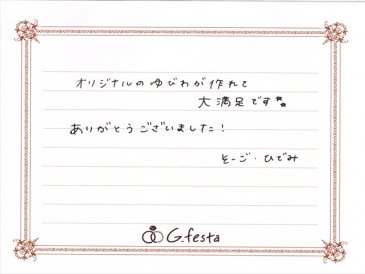 オリジナルのゆびわが作れて
大満足です**
ありがとうございました!
そーご・ひでみ
G.festa